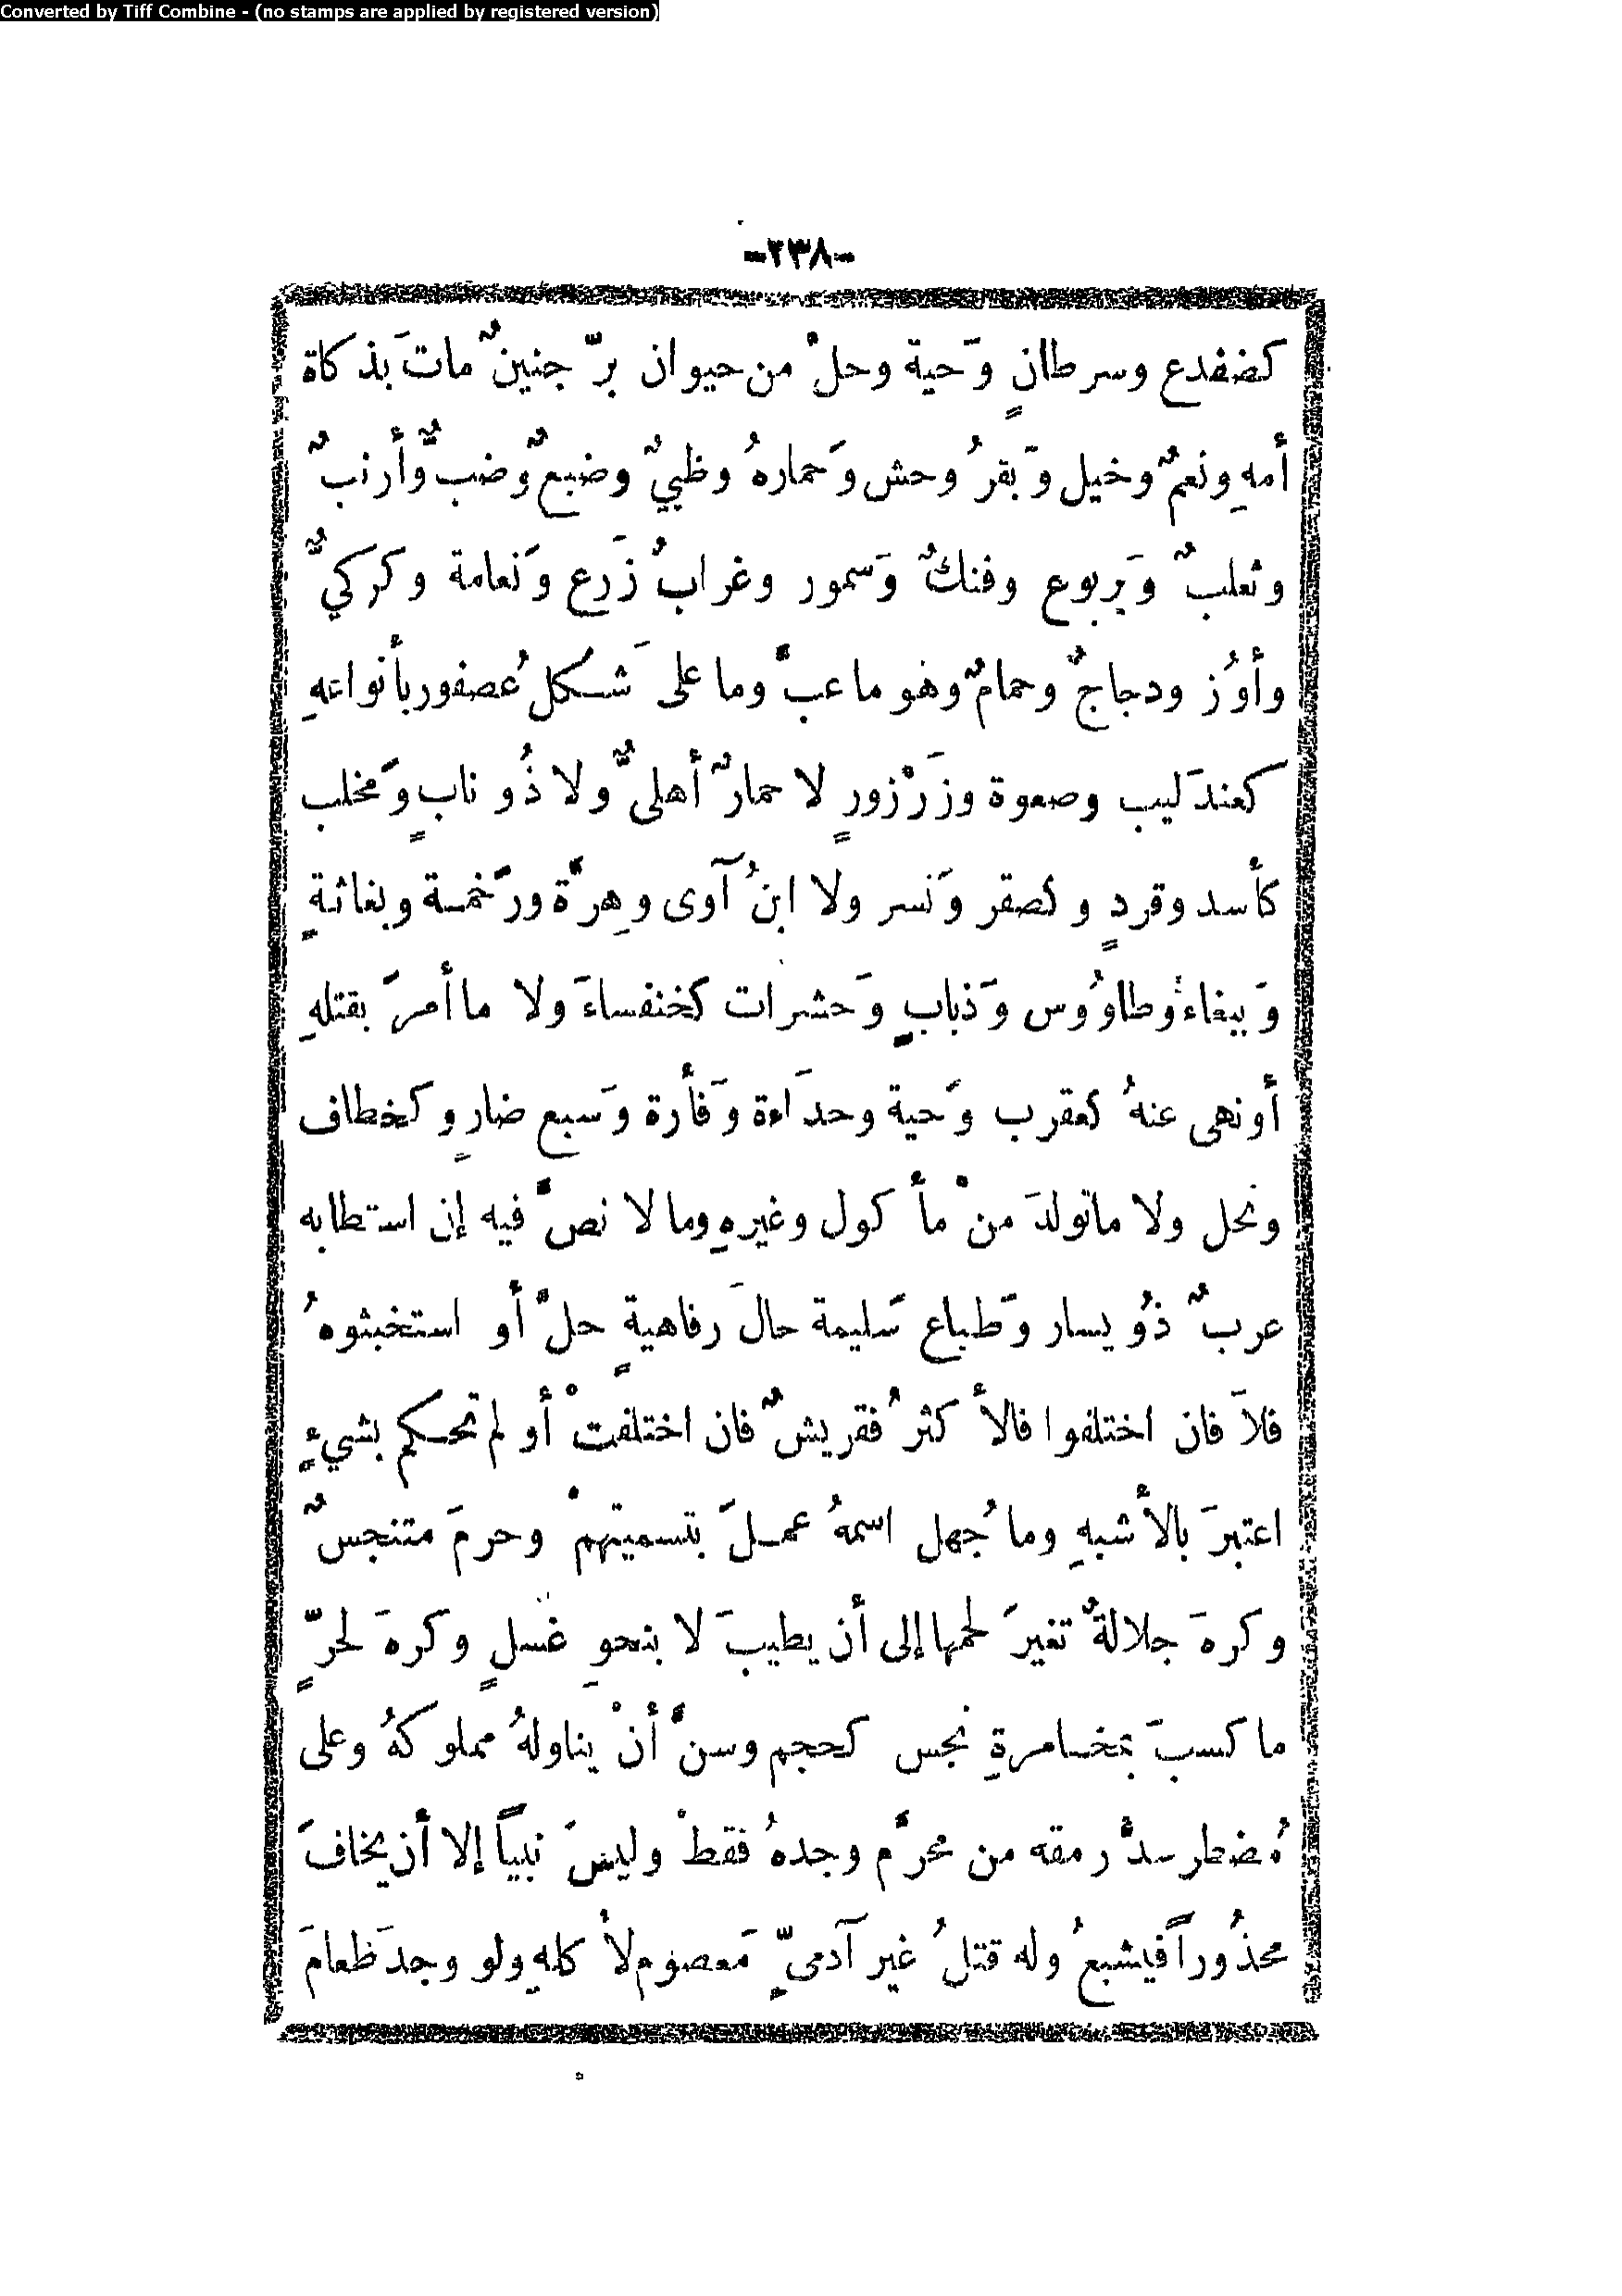 Converted by Tiff Combine - (no stamps are applied by registered version)
-٢٣٨-
كضفدع وسرطانٍ وَحية وحلْ من حيوان برّ جنينٌ ماتَ بذكاة
أمهِ ونعمٌ وخيل وَبقرُ وحش وَحمارهُ وظبيٌ وضبعٌ وضبٌّ وأرنبٌ
وثعلبٌ وَيربوع وفنكٌ وَسمور وغرابُ زَرع وَنعامة وكركيٌّ
وأوُز ودجاجٌ وحمامٌ وهو ما عبَّ وما على شَكل عُصفور بأنواعهِ
كعندَليب وصعوة وزَرْزورٍ لا حمارٌ أهليٌّ ولا ذُو نابٍ وَمخلب
كأسد وقردٍ وكصقر وَنسر ولا ابنُ آوى وهِرَّة ورَخمة وبغاثةٍ
وَببغاءٔ وطاوُوس وَذبابٍ وَحشرات كخنفساءَ ولا ما أمرَ بقتلهِ
أونهى عنهُ كعقرب وَحية وحدَاءة وَفأرة وَسبع ضارٍ وكخطاف
ونحل ولا ماتولدَ منْ مأكول وغيرهِ وما لا نصَّ فيه إن استطابه
عربٌ ذوُ يسار وَطباع سَليمة حالَ رفاهيةٍ حلَّ أو استخبثوهُ
فلاَ فان اختلفوا فالأكثرُ فقريشٌ فان اختلفتْ أو لم تحكم بشيءٍ
اعتبرَ بالأشبهِ وما جُهل اسمهُ عملَ بتسميتهمْ وحرمَ متنجسٌ
وكرهَ جلالةٌ تغيرَ لحمها إلى أن يطيبَ لا بنحوِ غسلٍ وكرهَ لحرٍّ
ما كسبَ بمخامرةِ نجس كحجم وسنَّ أنْ يناولهُ مملوكهُ وعلى
مُضطر سدُّ رمقه من محرَّم وجدهُ فقطْ وليسَ نبياً إلا أن يخافَ
محذُوراً فيشبعُ وله قتلُ غير آدميّ مَعصوم لأكلهِ ولو وجدَ طعامَ